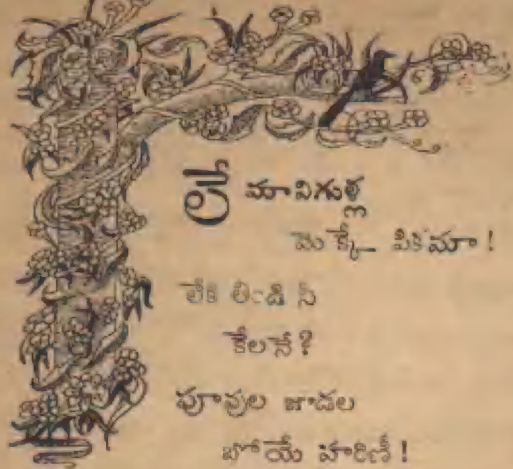 లే మావిగుళ్ల
మెక్కే పికమా !
లేకి తిండి నీ
కేలనే ?
పూవుల జాడల
బోయే హరిణీ !